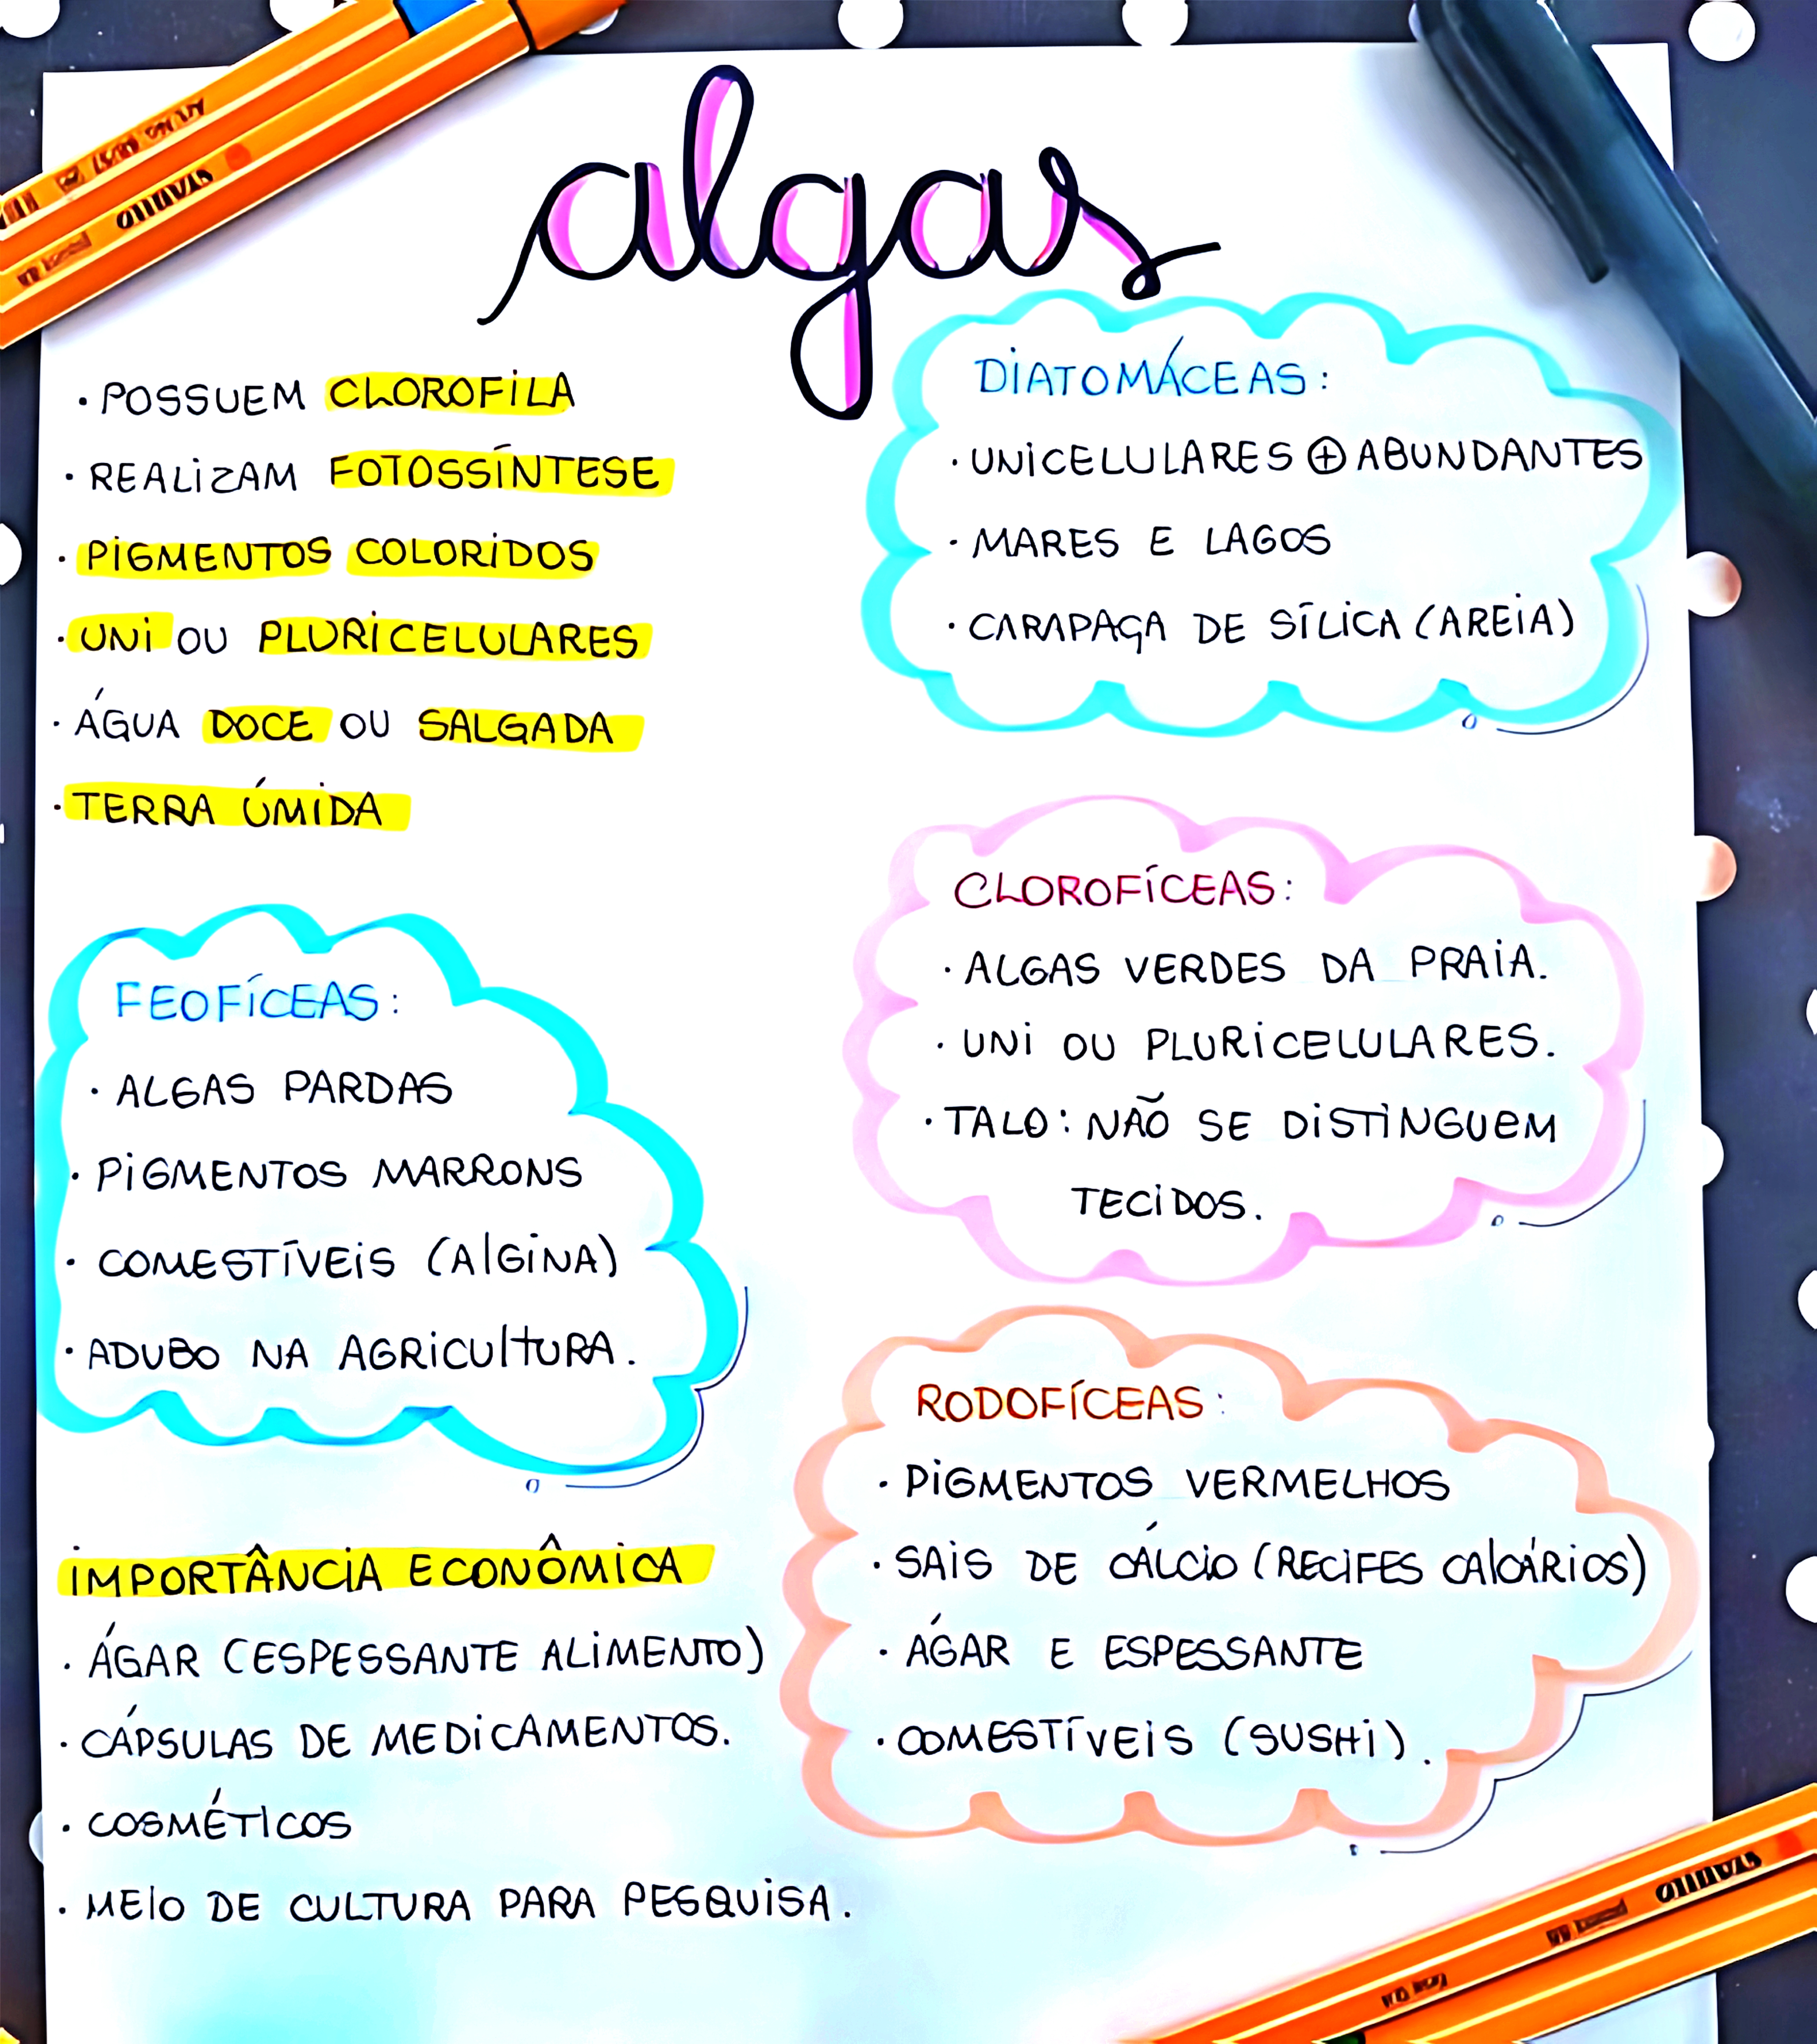 algas
· POSSUEM CLOROFILA
· REALIZAM FOTOSSÍNTESE
· PIGMENTOS COLORIDOS
· UNI OU PLURICELULARES
· ÁGUA DOCE OU SALGADA
· TERRA ÚMIDA
DIATOMÁCEAS:
· UNICELULARES ⊕ ABUNDANTES
· MARES E LAGOS
· CARAPAÇA DE SÍLICA (AREIA)
CLOROFÍCEAS:
· ALGAS VERDES DA PRAIA.
· UNI OU PLURICELULARES.
· TALO: NÃO SE DISTINGUEM
TECIDOS.
FEOFÍCEAS:
· ALGAS PARDAS
· PIGMENTOS MARRONS
· COMESTÍVEIS (AlGINA)
· ADUBO NA AGRICUlTURA.
RODOFÍCEAS:
· PIGMENTOS VERMELHOS
· SAIS DE CÁLCIO (RECIFES CAlCÁRIOS)
· ÁGAR E ESPESSANTE
· COMESTÍVEIS (SUSHI).
IMPORTÂNCIA ECONÔMICA
· ÁGAR (ESPESSANTE ALIMENTO)
· CÁPSULAS DE MEDICAMENTOS.
· COSMÉTICOS
· MEIO DE CULTURA PARA PESQUISA.
STABILO
STABILO